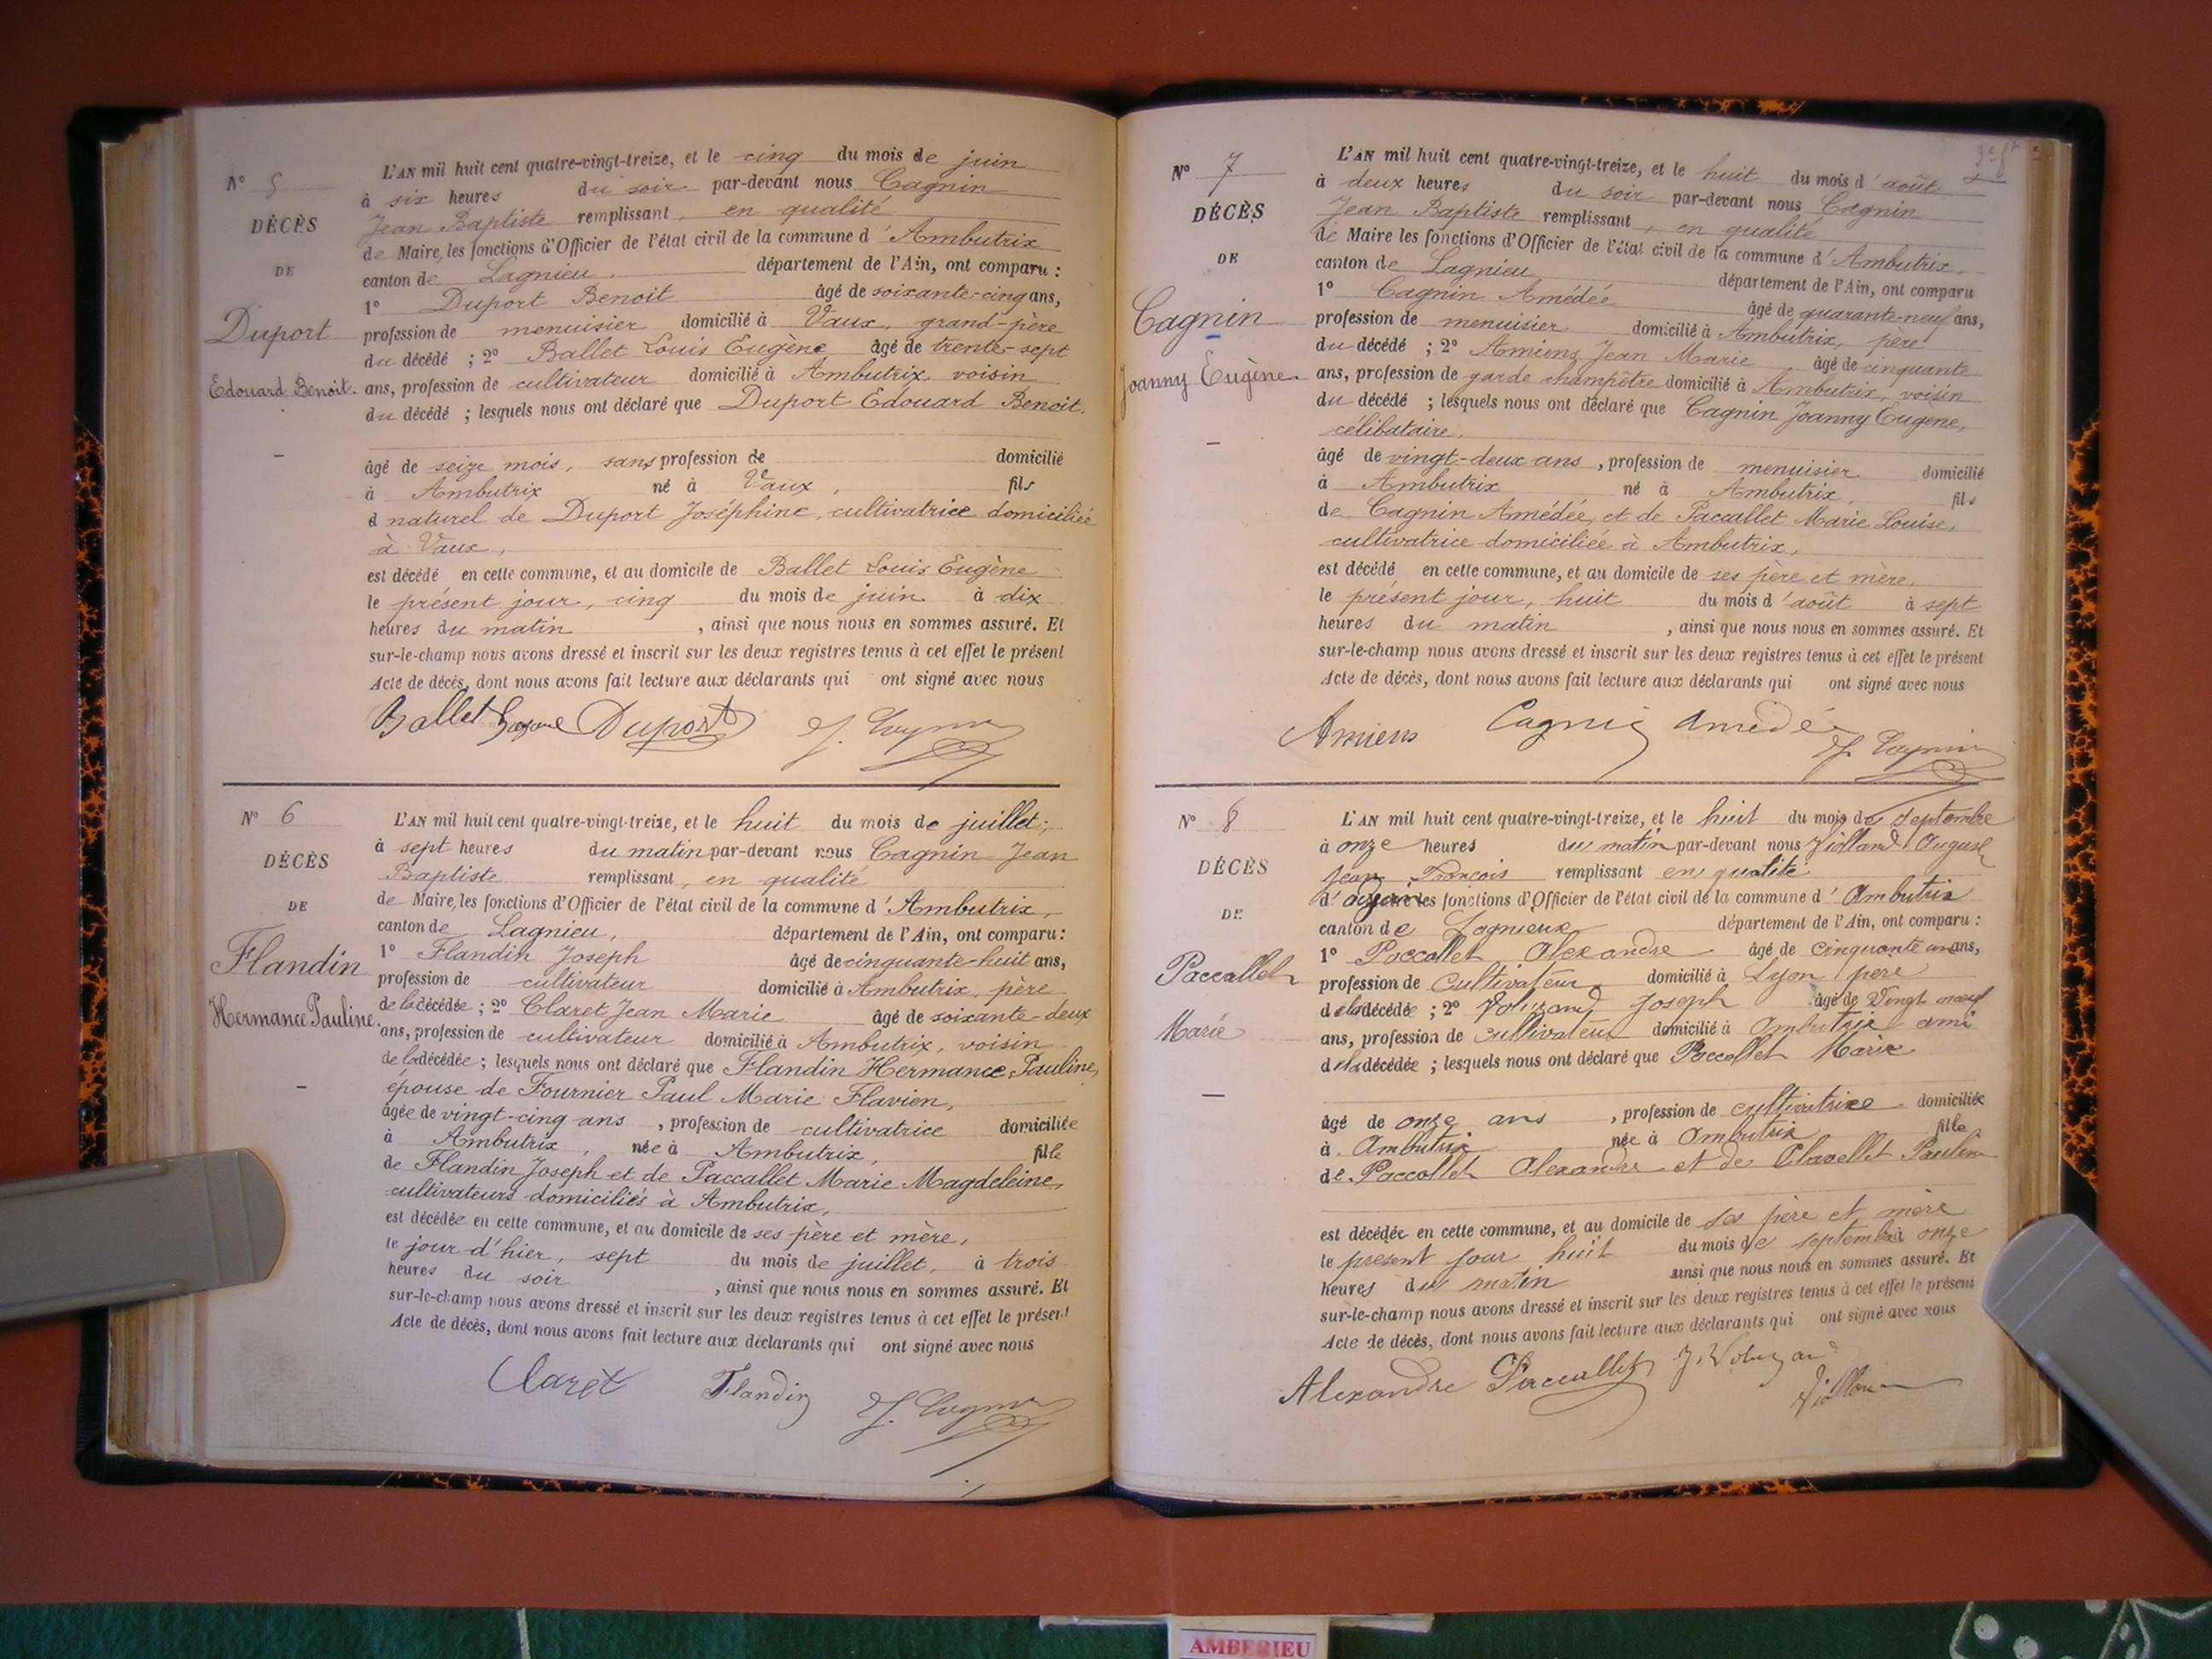 N° 5
DÉCÈS
DE
Duport
Edouard Benoit.
L'AN mil huit cent quatre-vingt-treize, et le cinq du mois de juin
à six heures du soir par-devant nous Cagnin
Jean Baptiste remplissant, en qualité
de Maire, les fonctions d'Officier de l'état civil de la commune d'Ambutrix
canton de Lagnieu, département de l'Ain, ont comparu :
1° Duport Benoit âgé de soixante-cinq ans,
profession de menuisier domicilié à Vaux, grand-père
du décédé ; 2° Ballet Louis Eugène âgé de trente-sept
ans, profession de cultivateur domicilié à Ambutrix, voisin
du décédé ; lesquels nous ont déclaré que Duport Edouard Benoit,
âgé de seize mois, sans profession de domicilié
à Ambutrix né à Vaux, fils
d naturel de Duport Joséphine, cultivatrice domiciliée
à Vaux,
est décédé en cette commune, et au domicile de Ballet Louis Eugène
le présent jour, cinq du mois de juin à dix
heures du matin, ainsi que nous nous en sommes assuré. Et
sur-le-champ nous avons dressé et inscrit sur les deux registres tenus à cet effet le présent
Acte de décès, dont nous avons fait lecture aux déclarants qui ont signé avec nous
Ballet Duport J. Cagnin
N° 6
DÉCÈS
DE
Flandin
Hermance Pauline.
L'AN mil huit cent quatre-vingt-treize, et le huit du mois de juillet,
à sept heures du matin par-devant nous Cagnin Jean
Baptiste remplissant, en qualité
de Maire, les fonctions d'Officier de l'état civil de la commune d'Ambutrix,
canton de Lagnieu, département de l'Ain, ont comparu :
1° Flandin Joseph âgé de cinquante-huit ans,
profession de cultivateur domicilié à Ambutrix, père
de la décédée ; 2° Claret Jean Marie âgé de soixante-deux
ans, profession de cultivateur domicilié à Ambutrix, voisin
de la décédée ; lesquels nous ont déclaré que Flandin Hermance Pauline,
épouse de Fournier Paul Marie Flavien,
âgée de vingt-cinq ans, profession de cultivatrice domiciliée
à Ambutrix, née à Ambutrix, fille
de Flandin Joseph et de Paccallet Marie Magdeleine,
cultivateurs domiciliés à Ambutrix,
est décédée en cette commune, et au domicile de ses père et mère,
le jour d'hier, sept du mois de juillet, à trois
heures du soir, ainsi que nous nous en sommes assuré. Et
sur-le-champ nous avons dressé et inscrit sur les deux registres tenus à cet effet le présent
Acte de décès, dont nous avons fait lecture aux déclarants qui ont signé avec nous
Claret Flandin J. Cagnin
N° 7
DÉCÈS
DE
Cagnin
Joanny Eugène.
L'AN mil huit cent quatre-vingt-treize, et le huit du mois d'août
à deux heures du soir par-devant nous Cagnin
Jean Baptiste remplissant, en qualité
de Maire les fonctions d'Officier de l'état civil de la commune d'Ambutrix,
canton de Lagnieu département de l'Ain, ont comparu
1° Cagnin Amédée âgé de quarante-neuf ans,
profession de menuisier domicilié à Ambutrix, père
du décédé ; 2° Amiens Jean Marie âgé de cinquante
ans, profession de garde champêtre domicilié à Ambutrix, voisin
du décédé ; lesquels nous ont déclaré que Cagnin Joanny Eugène,
célibataire,
âgé de vingt-deux ans, profession de menuisier domicilié
à Ambutrix né à Ambutrix, fils
de Cagnin Amédée, et de Paccallet Marie Louise,
cultivatrice domiciliée à Ambutrix,
est décédé en cette commune, et au domicile de ses père et mère,
le présent jour, huit du mois d'août à sept
heures du matin, ainsi que nous nous en sommes assuré. Et
sur-le-champ nous avons dressé et inscrit sur les deux registres tenus à cet effet le présent
Acte de décès, dont nous avons fait lecture aux déclarants qui ont signé avec nous
Amiens Cagnin Amédée J. Cagnin
N° 8
DÉCÈS
DE
Paccallet
Marie
L'AN mil huit cent quatre-vingt-treize, et le huit du mois de septembre
à onze heures du matin par-devant nous Violland August
Jean François remplissant en qualité
d' adjoint les fonctions d'Officier de l'état civil de la commune d'Ambutrix
canton de Lagnieux département de l'Ain, ont comparu :
1° Paccallet Alexandre âgé de cinquante ans,
profession de cultivateur domicilié à Lyon père
de la décédé ; 2° Volozand Joseph âgé de vingt neuf
ans, profession de cultivateur domicilié à Ambutrix ami
de la décédée ; lesquels nous ont déclaré que Paccallet Marie
âgé de onze ans, profession de cultivatrice domiciliée
à Ambutrix née à Ambutrix fille
de Paccallet Alexandre et de Clavellet Paulin
est décédée en cette commune, et au domicile de ses père et mère
le présent jour huit du mois de septembre onze
heures du matin ainsi que nous nous en sommes assuré. Et
sur-le-champ nous avons dressé et inscrit sur les deux registres tenus à cet effet le présent
Acte de décès, dont nous avons fait lecture aux déclarants qui ont signé avec nous
Alexandre Paccallet J. Volozand
Violland
AMBERIEU